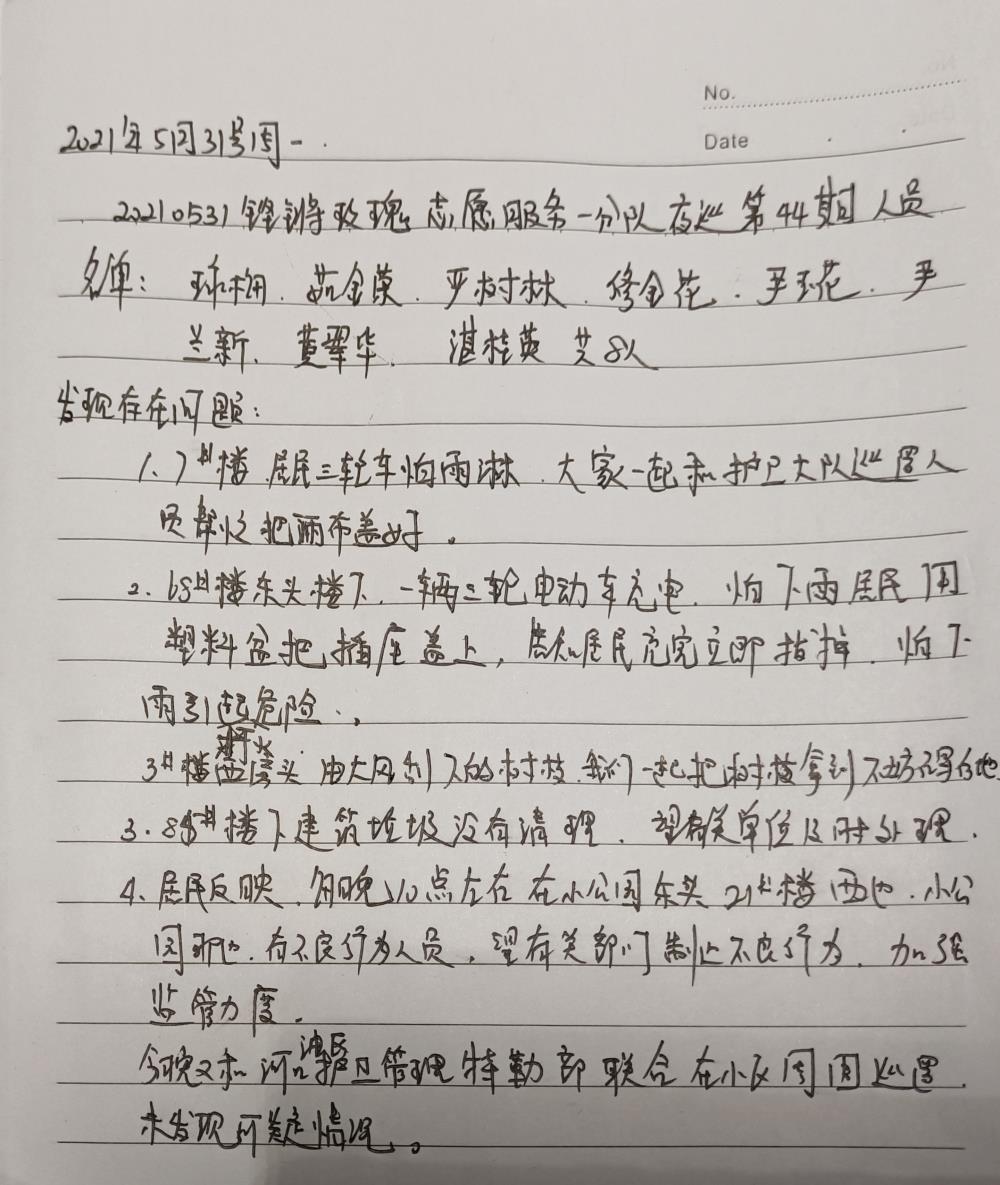 No.
Date
2021年5月31号周一.
20210531铿锵玫瑰志愿服务一分队夜巡第44期人员
名单: 球梅、茹金英、严树林、修金花、尹玉花、尹
兰新、黄翠华、湛桂英 共8人
发现存在问题:
1、7#楼居民三轮车怕雨淋、大家一起和护卫大队巡逻人
员帮忙把雨布盖好。
2、68#楼东头楼下、一辆三轮电动车充电、怕下雨居民用
塑料盆把插座盖上,告知居民充完立即拔掉、怕下
雨引起危险、
3#楼西头由大风刮下的树枝、我们一起把树枝拿到不妨碍的地
3、88#楼下建筑垃圾没有清理、望有关单位及时处理.
4、居民反映、每晚10点左右在小公园东头21#楼西边、小公
园那边、有不良行为人员,望有关部门制止不良行为、加强
监管力度.
今晚又和河护卫管理特勤部联合在小区周围巡逻.
未发现可疑情况。